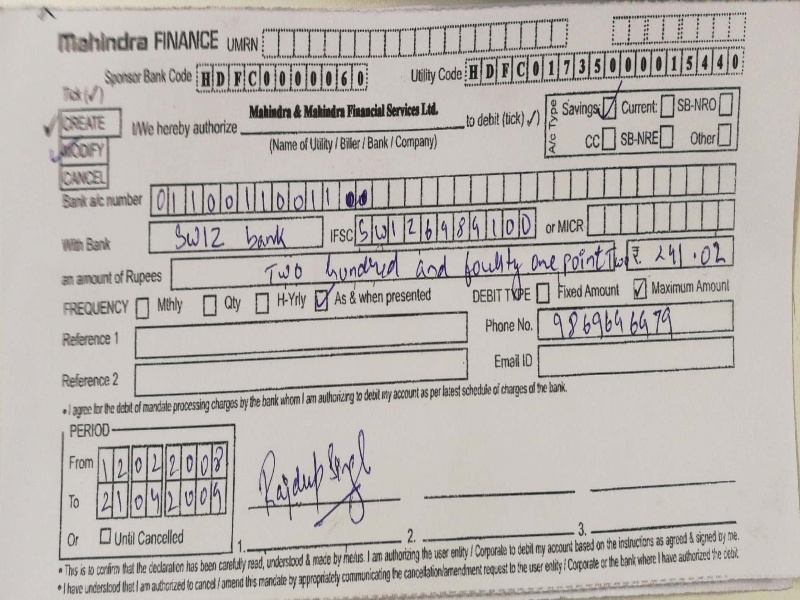 Mahindra FINANCE UMRN
Sponsor Bank Code HDFC0000060 Utility Code HDFC01735000015440
Tick (✓)
CREATE
MODIFY
CANCEL
I/We hereby authorize Mahindra & Mahindra Financial Services Ltd. to debit (tick ✓)
(Name of Utility / Biller / Bank / Company)
A/c Type Savings Current: SB-NRO
CC SB-NRE Other
Bank a/c number 0110011001100
With Bank SWIZ bank IFSC SWI26989100 or MICR
an amount of Rupees Two hundred and foulty one point Two ₹. 241.02
FREQUENCY Mthly Qty H-Yrly As & when presented DEBIT TYPE Fixed Amount Maximum Amount
Reference 1 Phone No. 9869696979
Reference 2 Email ID
• I agree for the debit of mandate processing charges by the bank whom I am authorizing to debit my account as per latest schedule of charges of the bank.
PERIOD
From 12022008
To 21092009
Or Until Cancelled
1. 2. 3.
• This is to confirm that the declaration has been carefully read, understood & made by me/us. I am authorizing the user entity / Corporate to debit my account based on the instructions as agreed & signed by me.
• I have understood that I am authorized to cancel / amend this mandate by appropriately communicating the cancellation/amendment request to the user entity / Corporate or the bank where I have authorized the debit